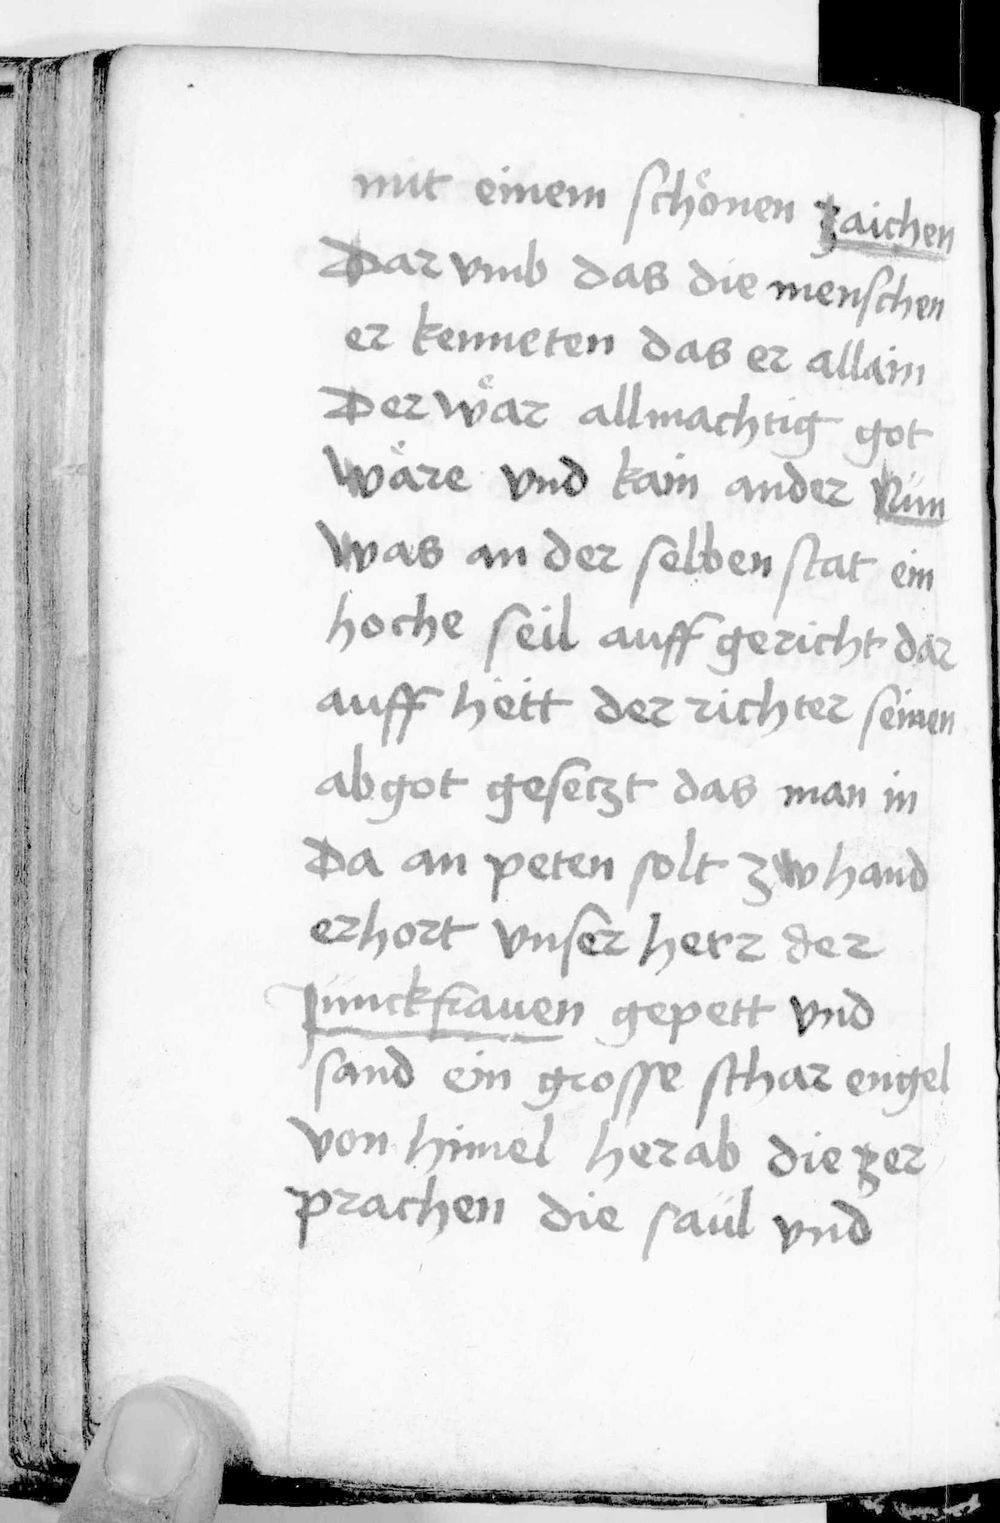 mit einem schönen zaichen
Dar vmb das die menschen
er kenneten das er allain
Der wär allmachtig got
wäre vnd kain ander Nün
was an der selben stat ein
hoche seil auff gericht dar
auff hett der richter seinen
abgot gesetzt das man in
Da an peten solt zw hand
erhort vnser herr der
Junckfrauen gepett vnd
sand ein grosse schar engel
von himel herab die zer
prachen die saül vnd